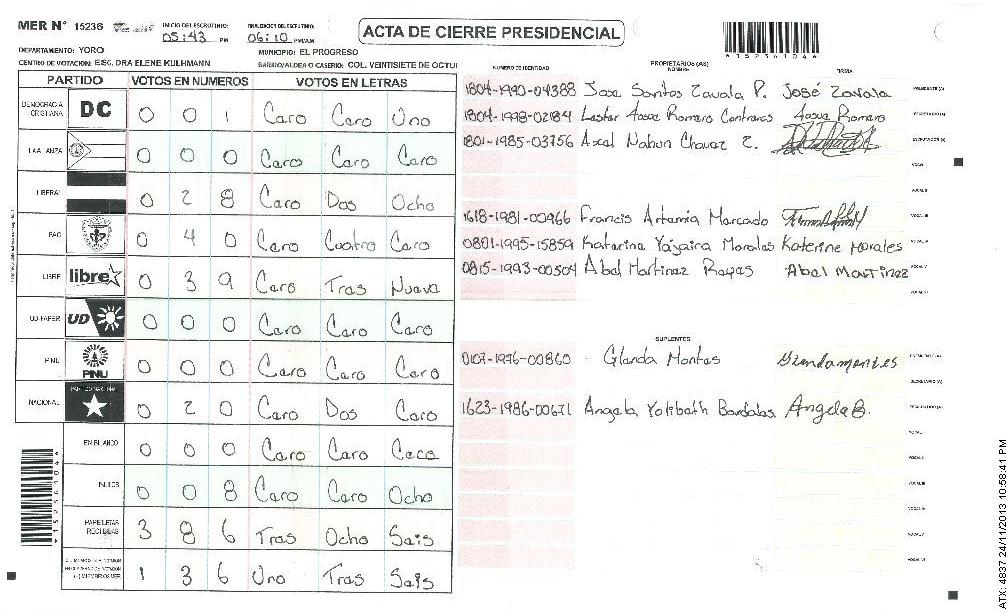 MER N° 15236 INICIO DEL ESCRUTINIO: 05:43 PM FINALIZACION DEL ESCRUTINIO: 06:10 PM/AM
ACTA DE CIERRE PRESIDENCIAL
DEPARTAMENTO: YORO MUNICIPIO: EL PROGRESO
CENTRO DE VOTACION: ESC. DRA ELENE KULHMANN BARRIO/ALDEA O CASERIO: COL. VEINTISIETE DE OCTU
PARTIDO VOTOS EN NUMEROS VOTOS EN LETRAS
DEMOCRACIA CRISTIANA DC 0 0 1 Caro Caro Uno
LA ALIANZA 0 0 0 Caro Caro Caro
LIBERAL 0 2 8 Caro Dos Ocho
PAC 0 4 0 Caro Cuatro Caro
LIBRE libre 0 3 9 Caro Tras Nueva
UD-FAPER UD 0 0 0 Caro Caro Caro
PINU PINU 0 0 0 Caro Caro Caro
NACIONAL 0 2 0 Caro Dos Caro
EN BLANCO 0 0 0 Caro Caro Caco
NULOS 0 0 8 Caro Caro Ocho
PAPELETAS RECIBIDAS 3 8 6 Tras Ocho Sais
1 3 6 Uno Tras Sais
NUMERO DE IDENTIDAD PROPIETARIOS (AS) NOMBRE FIRMA
1804-1990-04388 Jose Santos Zavala P. José Zavala PRESIDENTE (A)
1804-1998-02184 Lester Josue Romero Contreras Josue Romero SECRETARIO (A)
1801-1985-03756 Axcal Nahun Chavaz Z. ESCRUTADOR (A)
VOCAL I
VOCAL II
1618-1981-00966 Francis Artamia Marcado VOCAL III
0801-1995-15859 Katarina Yajaira Moralas Katerine Morales VOCAL IV
0815-1993-00504 Abal Martinaz Rayas Abel Martinez VOCAL V
VOCAL VI
SUPLENTES
0107-1976-00860 Glanda Montas Glendamontes PRESIDENTE (A)
SECRETARIO (A)
1623-1986-00671 Angala Yolibath Bardalas Angela B. ESCRUTADOR (A)
VOCAL I
VOCAL II
VOCAL III
VOCAL IV
VOCAL V
VOCAL VI
ATX: 4837 24/11/2013 10:58:41 PM